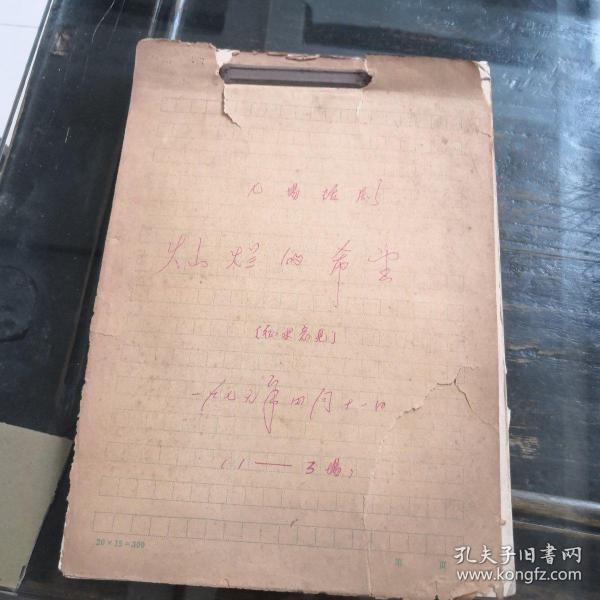 场话剧
灿烂的希望
(征求意见)
一九七九年四月十一日
(1——3场)
20×15=300
第 页
孔夫子旧书网
www.kongfz.com